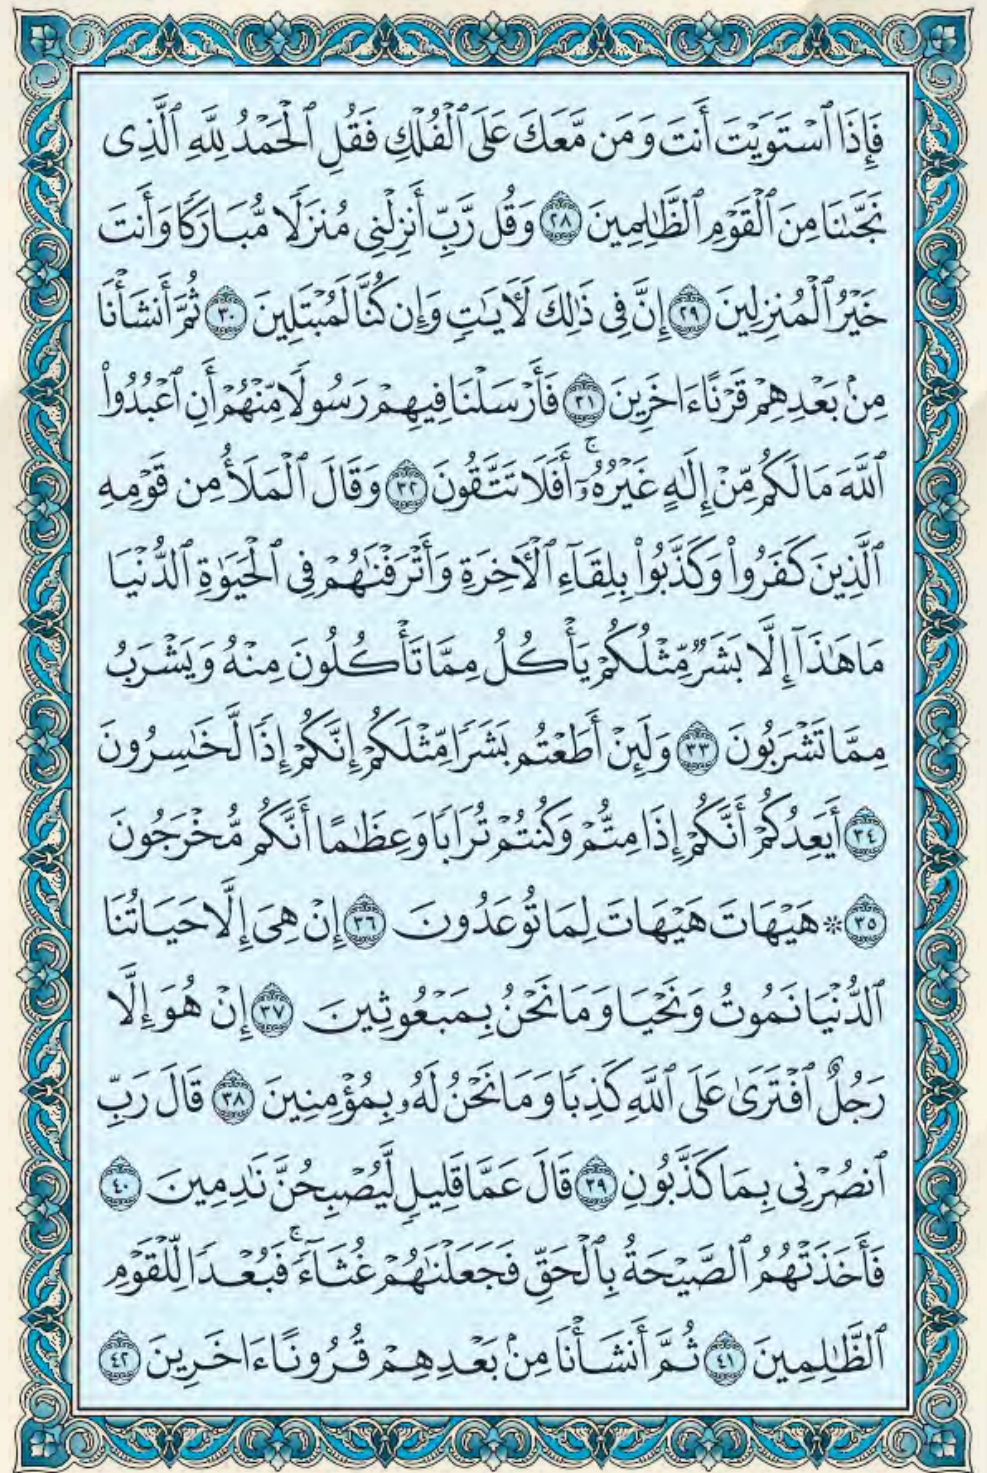 فَإِذَا ٱسْتَوَيْتَ أَنتَ وَمَن مَّعَكَ عَلَى ٱلْفُلْكِ فَقُلِ ٱلْحَمْدُ لِلَّهِ ٱلَّذِى
نَجَّىٰنَا مِنَ ٱلْقَوْمِ ٱلظَّٰلِمِينَ ٢٨ وَقُل رَّبِّ أَنزِلْنِى مُنزَلًا مُّبَارَكًا وَأَنتَ
خَيْرُ ٱلْمُنزِلِينَ ٢٩ إِنَّ فِى ذَٰلِكَ لَـَٔايَـٰتٍ وَإِن كُنَّا لَمُبْتَلِينَ ٣٠ ثُمَّ أَنشَأْنَا
مِنۢ بَعْدِهِمْ قَرْنًا ءَاخَرِينَ ٣١ فَأَرْسَلْنَا فِيهِمْ رَسُولًا مِّنْهُمْ أَنِ ٱعْبُدُوا۟
ٱللَّهَ مَا لَكُم مِّنْ إِلَـٰهٍ غَيْرُهُۥٓ ۚ أَفَلَا تَتَّقُونَ ٣٢ وَقَالَ ٱلْمَلَأُ مِن قَوْمِهِ
ٱلَّذِينَ كَفَرُوا۟ وَكَذَّبُوا۟ بِلِقَآءِ ٱلْـَٔاخِرَةِ وَأَتْرَفْنَـٰهُمْ فِى ٱلْحَيَوٰةِ ٱلدُّنْيَا
مَا هَـٰذَآ إِلَّا بَشَرٌ مِّثْلُكُمْ يَأْكُلُ مِمَّا تَأْكُلُونَ مِنْهُ وَيَشْرَبُ
مِمَّا تَشْرَبُونَ ٣٣ وَلَئِنْ أَطَعْتُم بَشَرًا مِّثْلَكُمْ إِنَّكُمْ إِذًا لَّخَـٰسِرُونَ
٣٤ أَيَعِدُكُمْ أَنَّكُمْ إِذَا مِتُّمْ وَكُنتُمْ تُرَابًا وَعِظَـٰمًا أَنَّكُم مُّخْرَجُونَ
٣٥ * هَيْهَاتَ هَيْهَاتَ لِمَا تُوعَدُونَ ٣٦ إِنْ هِىَ إِلَّا حَيَاتُنَا
ٱلدُّنْيَا نَمُوتُ وَنَحْيَا وَمَا نَحْنُ بِمَبْعُوثِينَ ٣٧ إِنْ هُوَ إِلَّا
رَجُلٌ ٱفْتَرَىٰ عَلَى ٱللَّهِ كَذِبًا وَمَا نَحْنُ لَهُۥ بِمُؤْمِنِينَ ٣٨ قَالَ رَبِّ
ٱنصُرْنِى بِمَا كَذَّبُونِ ٣٩ قَالَ عَمَّا قَلِيلٍ لَّيُصْبِحُنَّ نَـٰدِمِينَ ٤٠
فَأَخَذَتْهُمُ ٱلصَّيْحَةُ بِٱلْحَقِّ فَجَعَلْنَـٰهُمْ غُثَآءً ۚ فَبُعْدًا لِّلْقَوْمِ
ٱلظَّـٰلِمِينَ ٤١ ثُمَّ أَنشَأْنَا مِنۢ بَعْدِهِمْ قُرُونًا ءَاخَرِينَ ٤٢